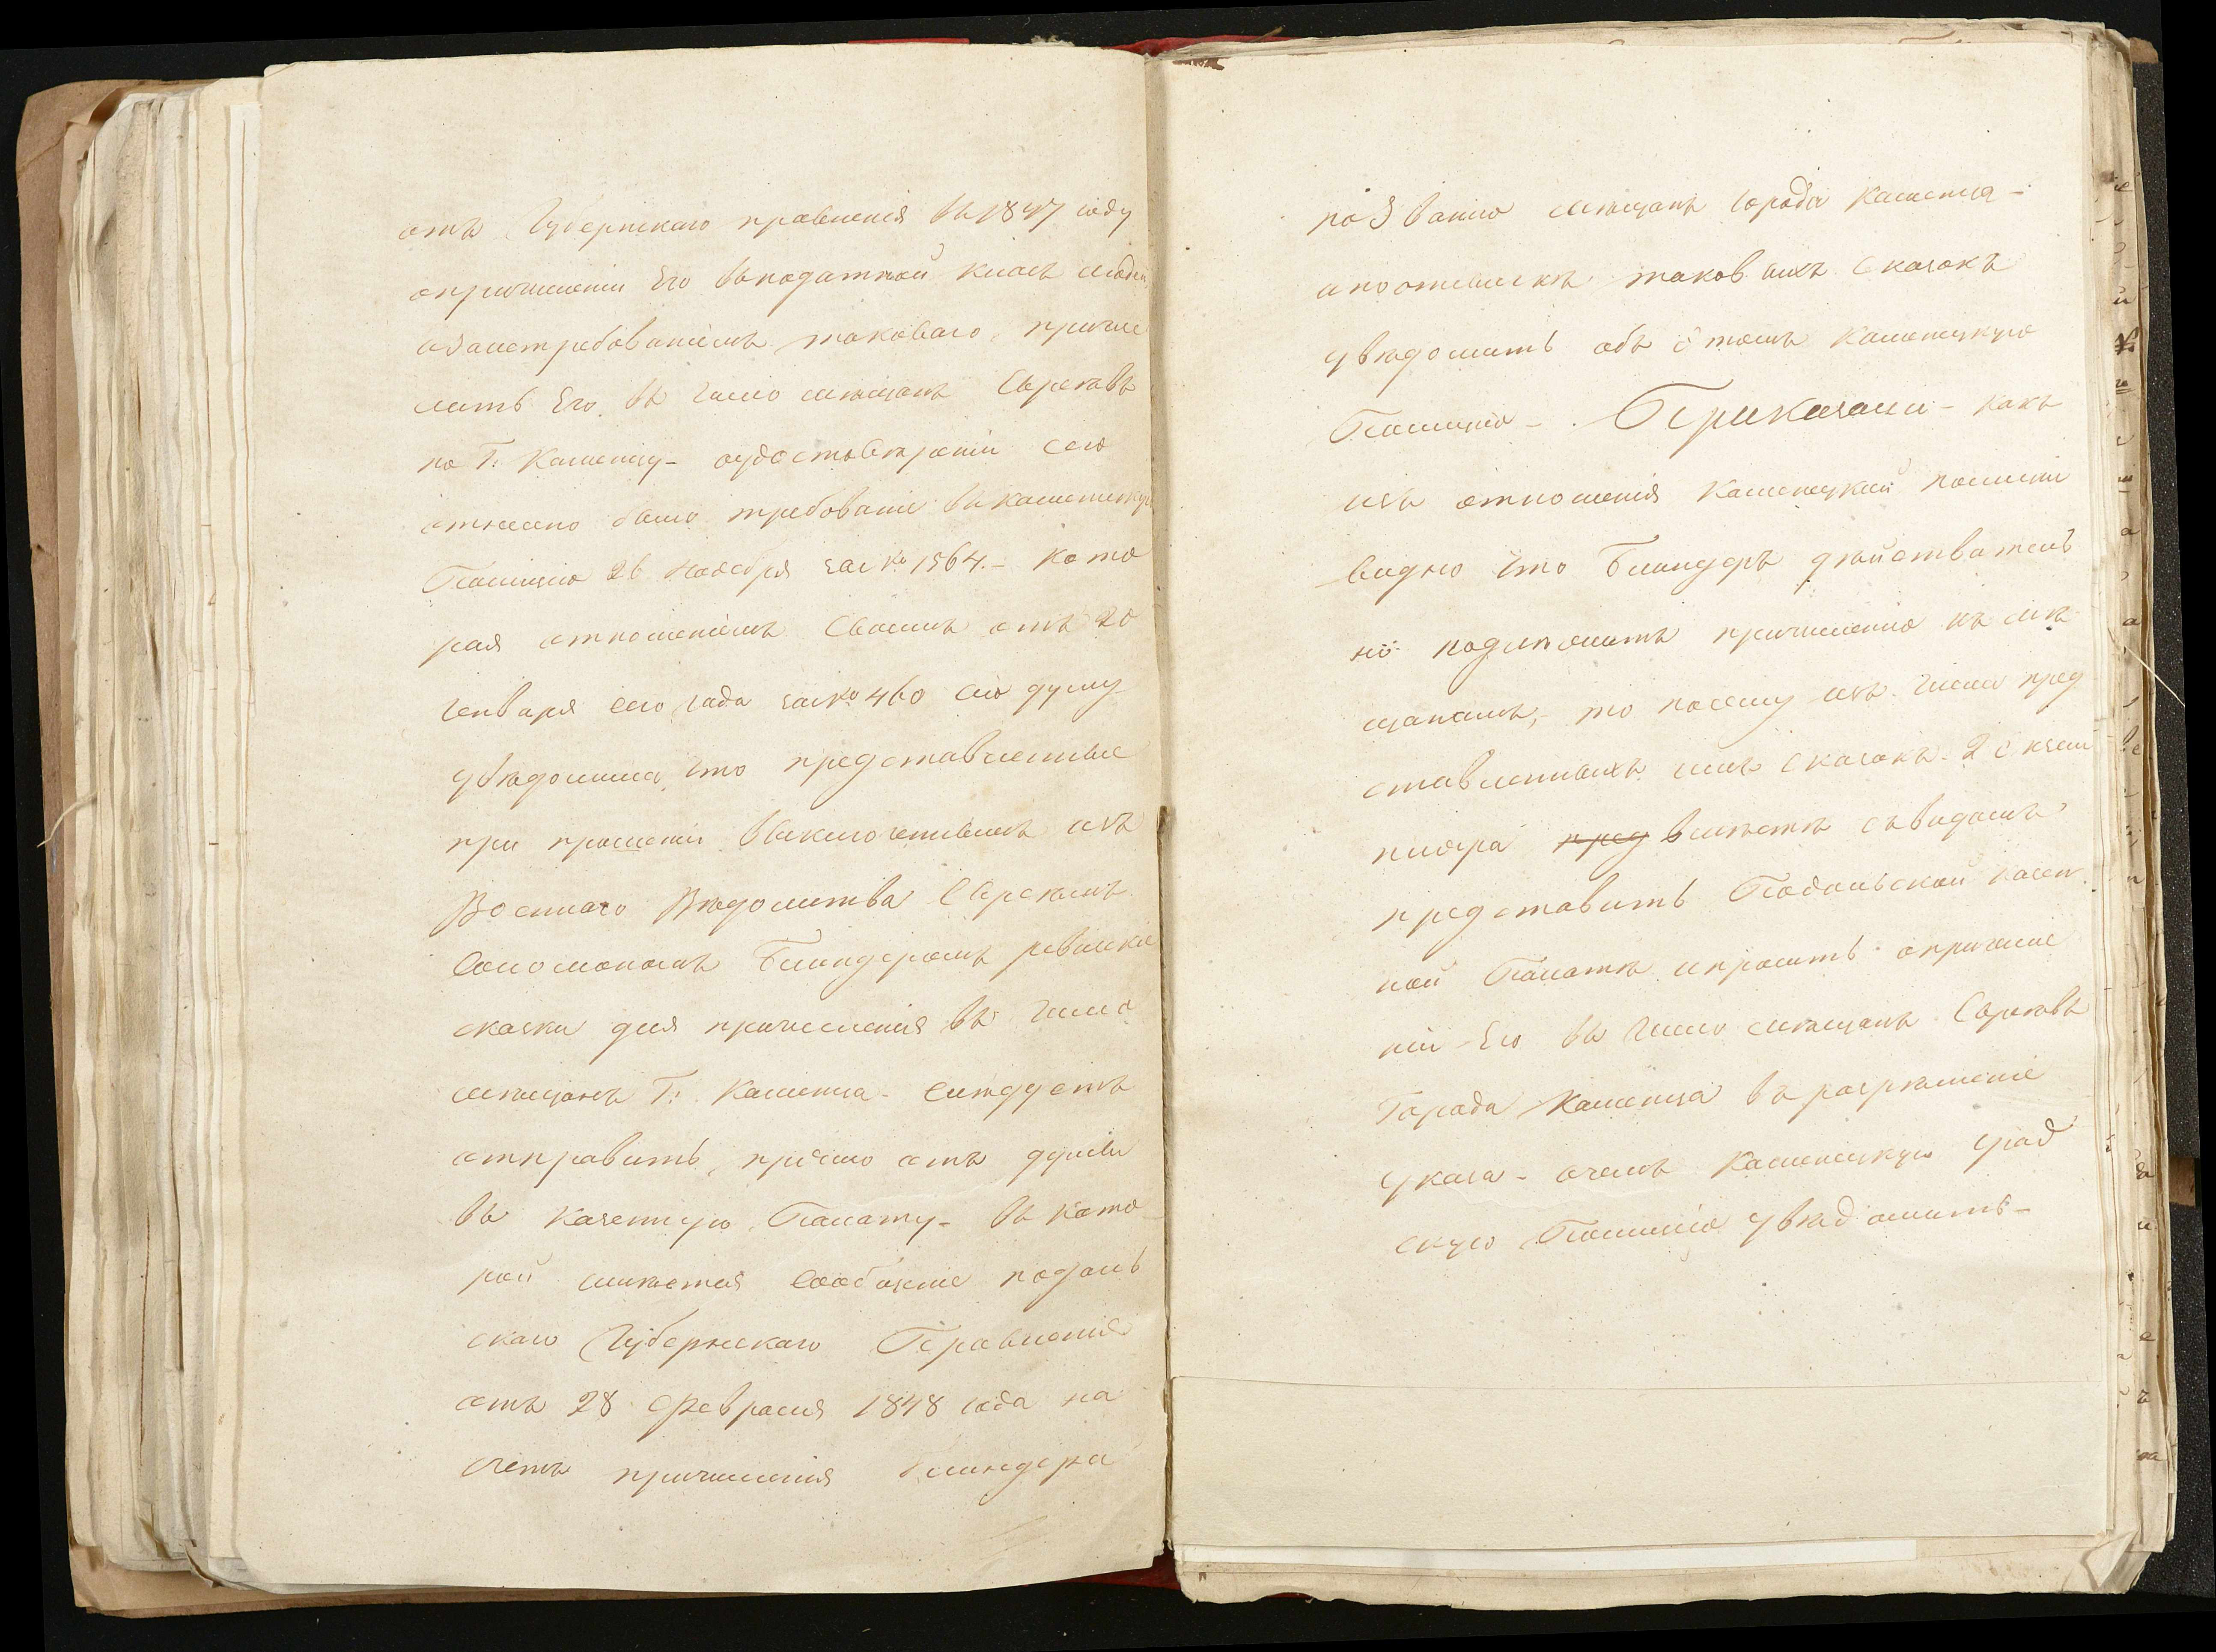 отъ Губернскаго правленія въ 1847 году
опричисленіи Его въподатной класъ людей
изаистребованіемъ таковаго, причис
лить Его въ число мещанъ Евреевъ
по Г: Каменцу - оудостовереніи сего
отнесено было требованіе въ каменецкую
Полицію 26 Ноября за № 1564. - кото
рая отношеніемъ Своимъ отъ 20
Генваря сего года за № 460 сію думу
уведомила, что представленные
при прошеніи Выключеннымъ изъ
Военнаго Ведомства Евреемъ
Соломономъ Блиндеромъ ревизкіе
сказки для причисленія въ число
мещанъ Г: Каменца - Следуетъ
отправить, прямо отъ думы
въ казенную Палату - въ кото
рой имеется Сообщеніе подоль
скаго Губернскаго Правленія
отъ 28 Февраля 1848 года на
счетъ причисленія Блиндера
по Званію мещанъ города Каменца -
ипоотсылке таковыхъ Сказокъ
уведомить объ этомъ Каменецкую
Полицію - Приказали - какъ
изъ отношенія Каменецкой полиціи
видно что Блиндеръ действитель
но подлежитъ причисленію къ ме
щанамъ, - то посему изъ числа пред
ставленныхъ имъ Сказокъ 2 екзем
пляра пред вместе съвидомъ
представить Подольской казен
ной Палате ипросить опричисле
ніи Его въ число мещанъ Евреевъ
Города Каменца въразрешеніе
указа - очемъ Каменецкую Град
скую Полицію уведомить -